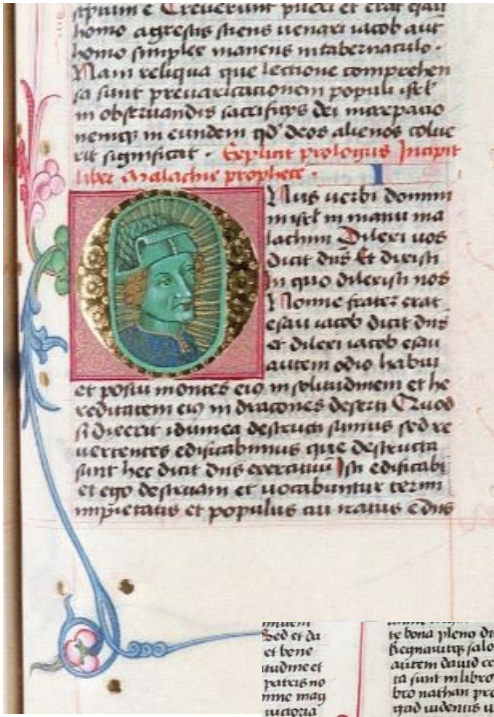 sptum e Creuerunt pueri et erat esau
homo agrestis sciens uenari iacob aut
homo simplex manens in tabernaculo .
Nam reliqua que lectione comprehen
sa sunt preuaricacionem populi isrl
in obseruandis sacrificijs dei increpacio
nemqꝫ in eundem qd' deos alienos colue
rit significat . Explicit prologus Incipit
liber Malachie prophete .
ONus uerbi domini
in isrl in manu ma
lachim Dilexi uos
dicit dns Et dixistis
in quo dilexisti nos
Nonne frater erat
esau iacob dicit dns
et dilexi iacob esau
autem odio habui
et posui montes eiꝰ in solitudinem et he
reditatem eiꝰ in dracones deserti Quod
si dixerit idumea destructi sumus sed re
uertentes edificabimus que destructa
sunt hec dicit dns exercituu Isti edificabt
et ego destruam et uocabuntur termi
impietatis et populus cui iratus e dns
Sed et da
et bene
tudine et
patris no
mne mag
uictoria
te bona pleno di
Regnauitqꝫ salo
autem dauid re
ta sunt in libro
bro nathan pro